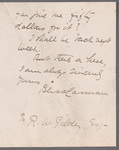 you give me fifty
dollars for it?
I shall be back next
week.
But there or here,
I am always sincerely
yours
Bliss Carman
R. W. Gilder, Esq.